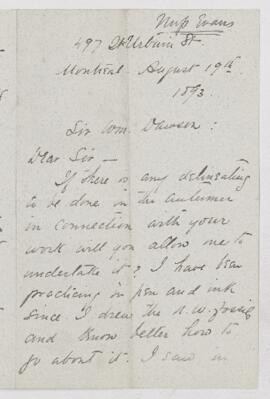 Miss Evans
497 St Urbain St
Montreal August 19th
1893.
Sir Wm. Dawson:
Dear Sir —
If there is any delineating
to be done in the autumn
in connection with your
work will you allow me to
undertake it? I have been
practicing in pen and ink
since I drew the N.W. fossils
and know better how to
go about it. I saw in